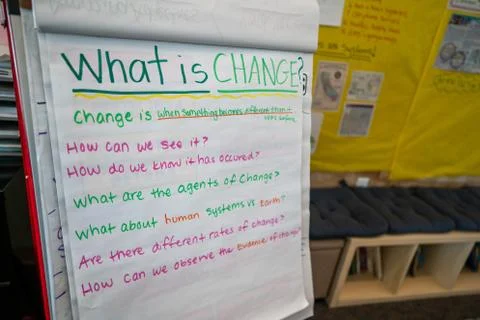 What is CHANGE?
Change is when something becomes different than it
was before
How can we see it?
How do we know it has occured?
What are the agents of Change?
What about human systems vs Earth?
Are there different rates of change?
How can we observe the Evidence of change?
Systems!